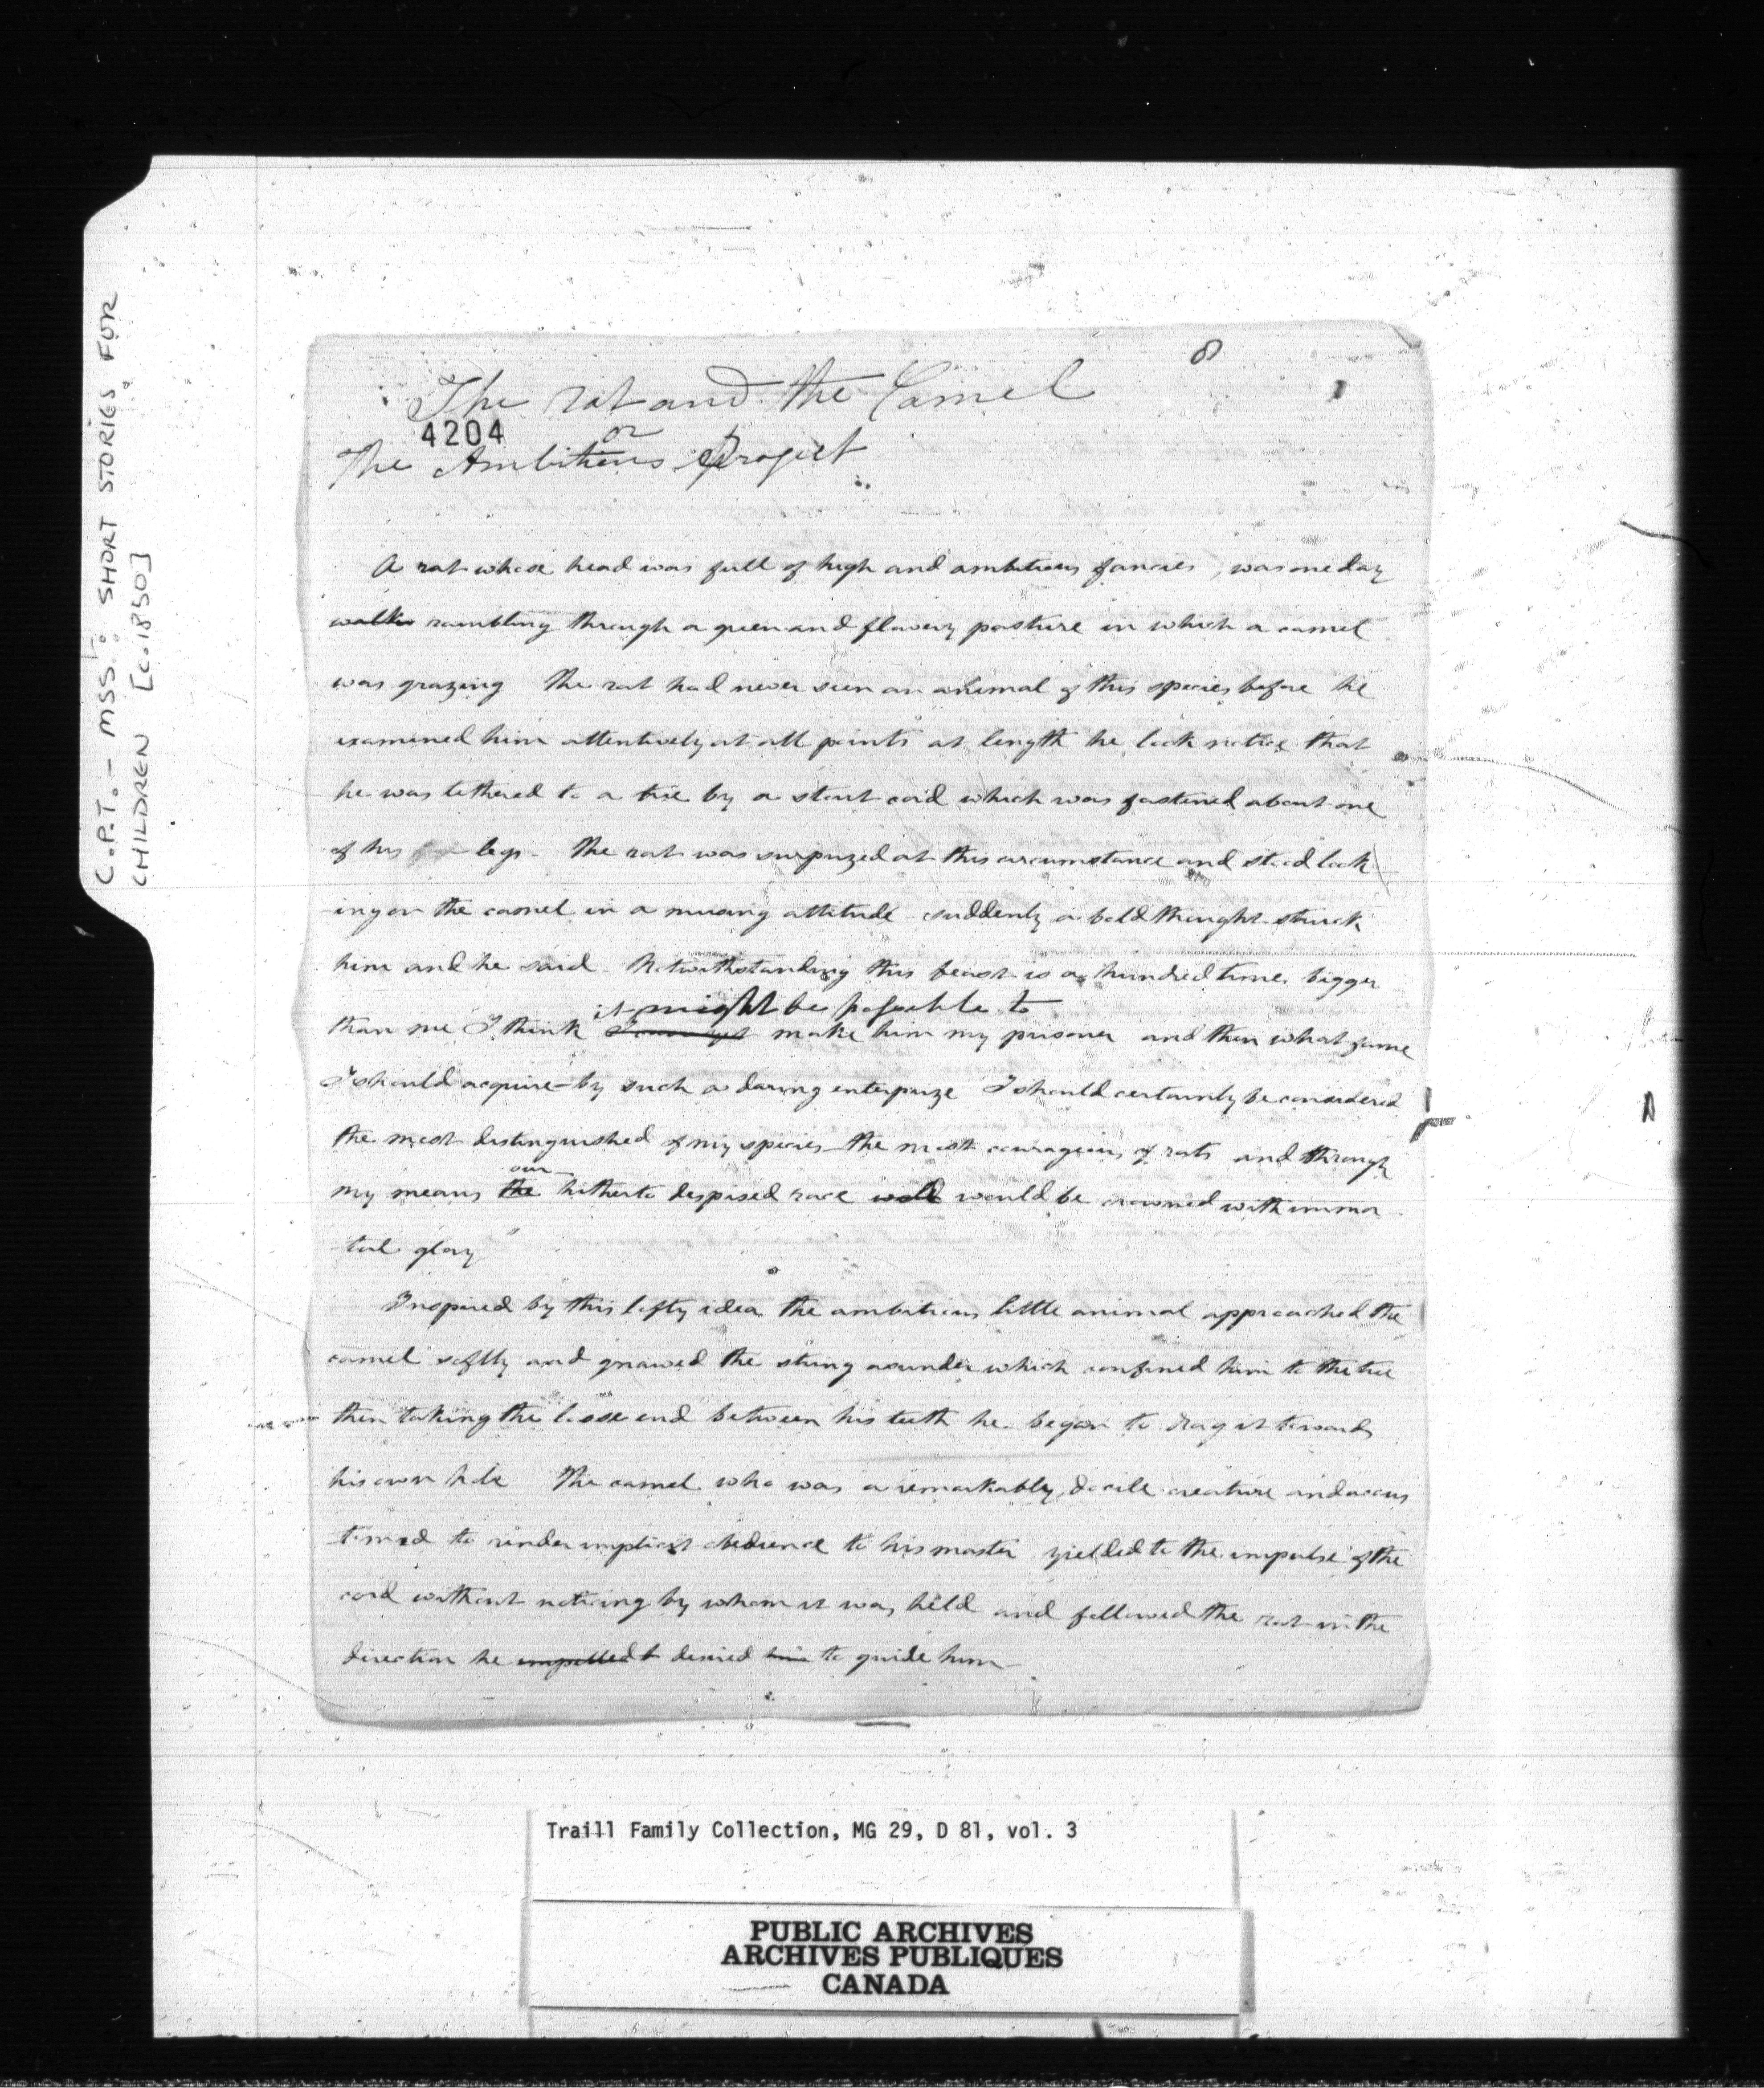 C.P.T. - MSS: SHORT STORIES FOR
CHILDREN [c.1850]
8
1
The rat and the Camel
4204
or
The Ambitious Project
A rat whose head was full of high and ambitious fancies, was one day
walkin rambling through a green and flowery pasture in which a camel
was grazing The rat had never seen an animal of this species before he
examined him attentively at all points at length he took notice that
he was tethered to a tree by a stout cord which was fastened about one
of his fore legs. The rat was surprized at this circumstance and stood look
ing on the camel in a musing attitude suddenly a bold thought struck
him and he said Notwithstanding this beast is a hundred times bigger
it might be possible to
than me I think make him my prisoner and then what fame
I should acquire by such a daring enterprize I should certainly be considered
the most distinguished of my species the most courageous of rats and through
our
my means the hitherto despised race would be crowned with immor
tal glory"
Inspired by this lofty idea the ambitious little animal approached the
camel softly and gnawed the string asunder which confined him to the tree
then taking the loose end between his teeth he began to drag it towards
his own hole The camel who was a remarkably docile creature and accus
tomed to render implicit obedience to his master yielded to the impulse of the
cord without noticing by whom it was held and followed the rat in the
direction he impelled t desired him to guide him
Traill Family Collection, MG 29, D 81, vol. 3
PUBLIC ARCHIVES
ARCHIVES PUBLIQUES
CANADA